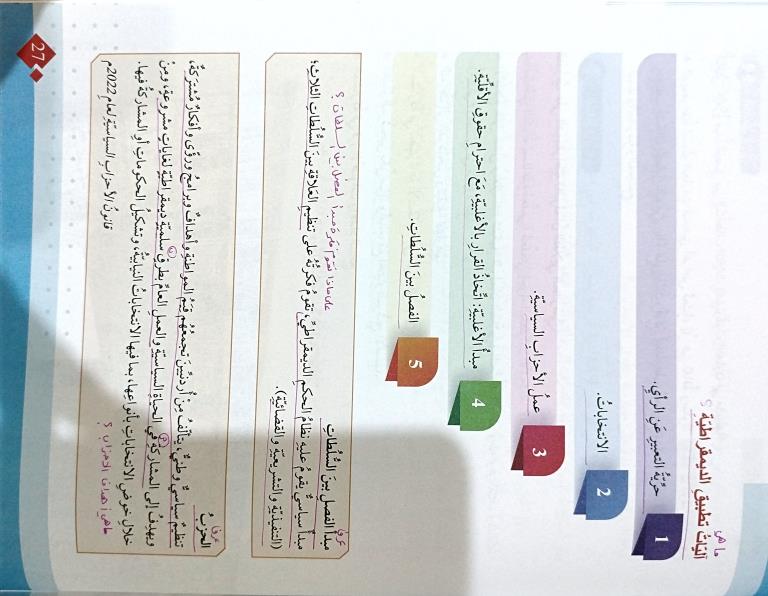 ما هي
آلِيّاتُ تطبيقِ الديمقراطيّةِ ؟
1
حرّيّةُ التعبيرِ عَنِ الرأيِ.
2
الانتخاباتُ.
3
عملُ الأحزابِ السياسيّةِ.
4
مبدأُ الأغلبيّةِ: اتّخاذُ القرارِ بالأغلبيّةِ، مَعَ احترامِ حقوقِ الأقلّيّةِ.
5
الفصلُ بينَ السُّلُطاتِ.
عرفي
مبدأُ الفصلِ بينَ السُّلُطاتِ
على ماذا تقوم فكرة مبدأ الفصل بين السلطات ؟
مبدأٌ سياسيٌّ يقومُ عليهِ نظامُ الحكمِ الديمقراطيِّ، تقومُ فكرتُهُ على تنظيمِ العَلاقةِ بينَ السُّلُطاتِ الثلاثِ؛
(التنفيذيّةِ والتشريعيّةِ والقضائيّةِ).
عرفي
الحزبُ
تنظيمٌ سياسيٌّ وطنيٌّ يتألَّفُ مِنْ أردنيّينَ تجمعُهُم قِيَمُ المواطنةِ وأهدافٌ وبرامجُ ورؤًى وأفكارٌ مُشتركةٌ،
ويهدِفُ إلى المشاركةِ في الحياةِ السياسيّةِ والعملِ العامِّ بطرقٍ سلميّةٍ ديمقراطيّةٍ لغاياتٍ مشروعةٍ، ومِنْ
خلالِ خوضِ الانتخاباتِ بأنواعِها، بما فيها الانتخاباتُ النيابيّةُ، وتشكيلُ الحكوماتِ أوِ المشاركةُ فيها.
ما هي أهداف الاحزاب ؟
قانونُ الأحزابِ السياسيّةِ لعامِ 2022م
27